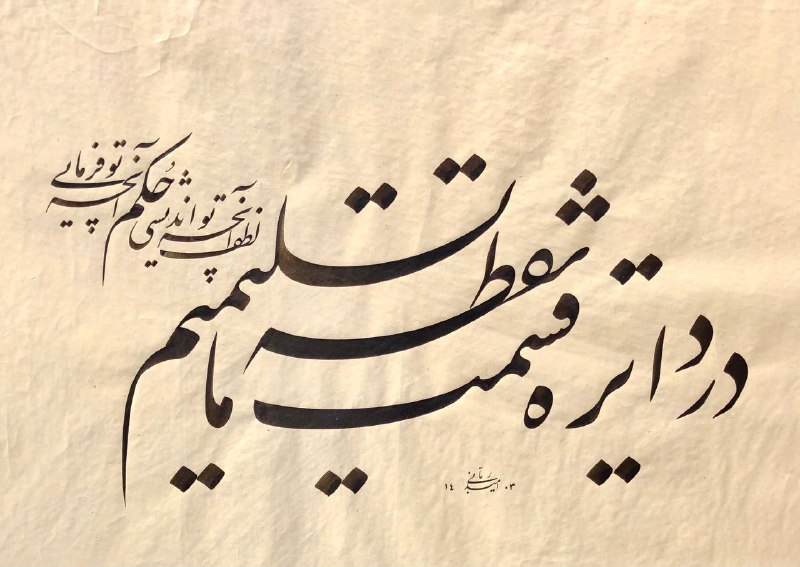 در دایره قسمت ما نقطه تسلیمیم
لطف آنچه تو اندیشی حکم آنچه تو فرمایی
۱۴۰۳